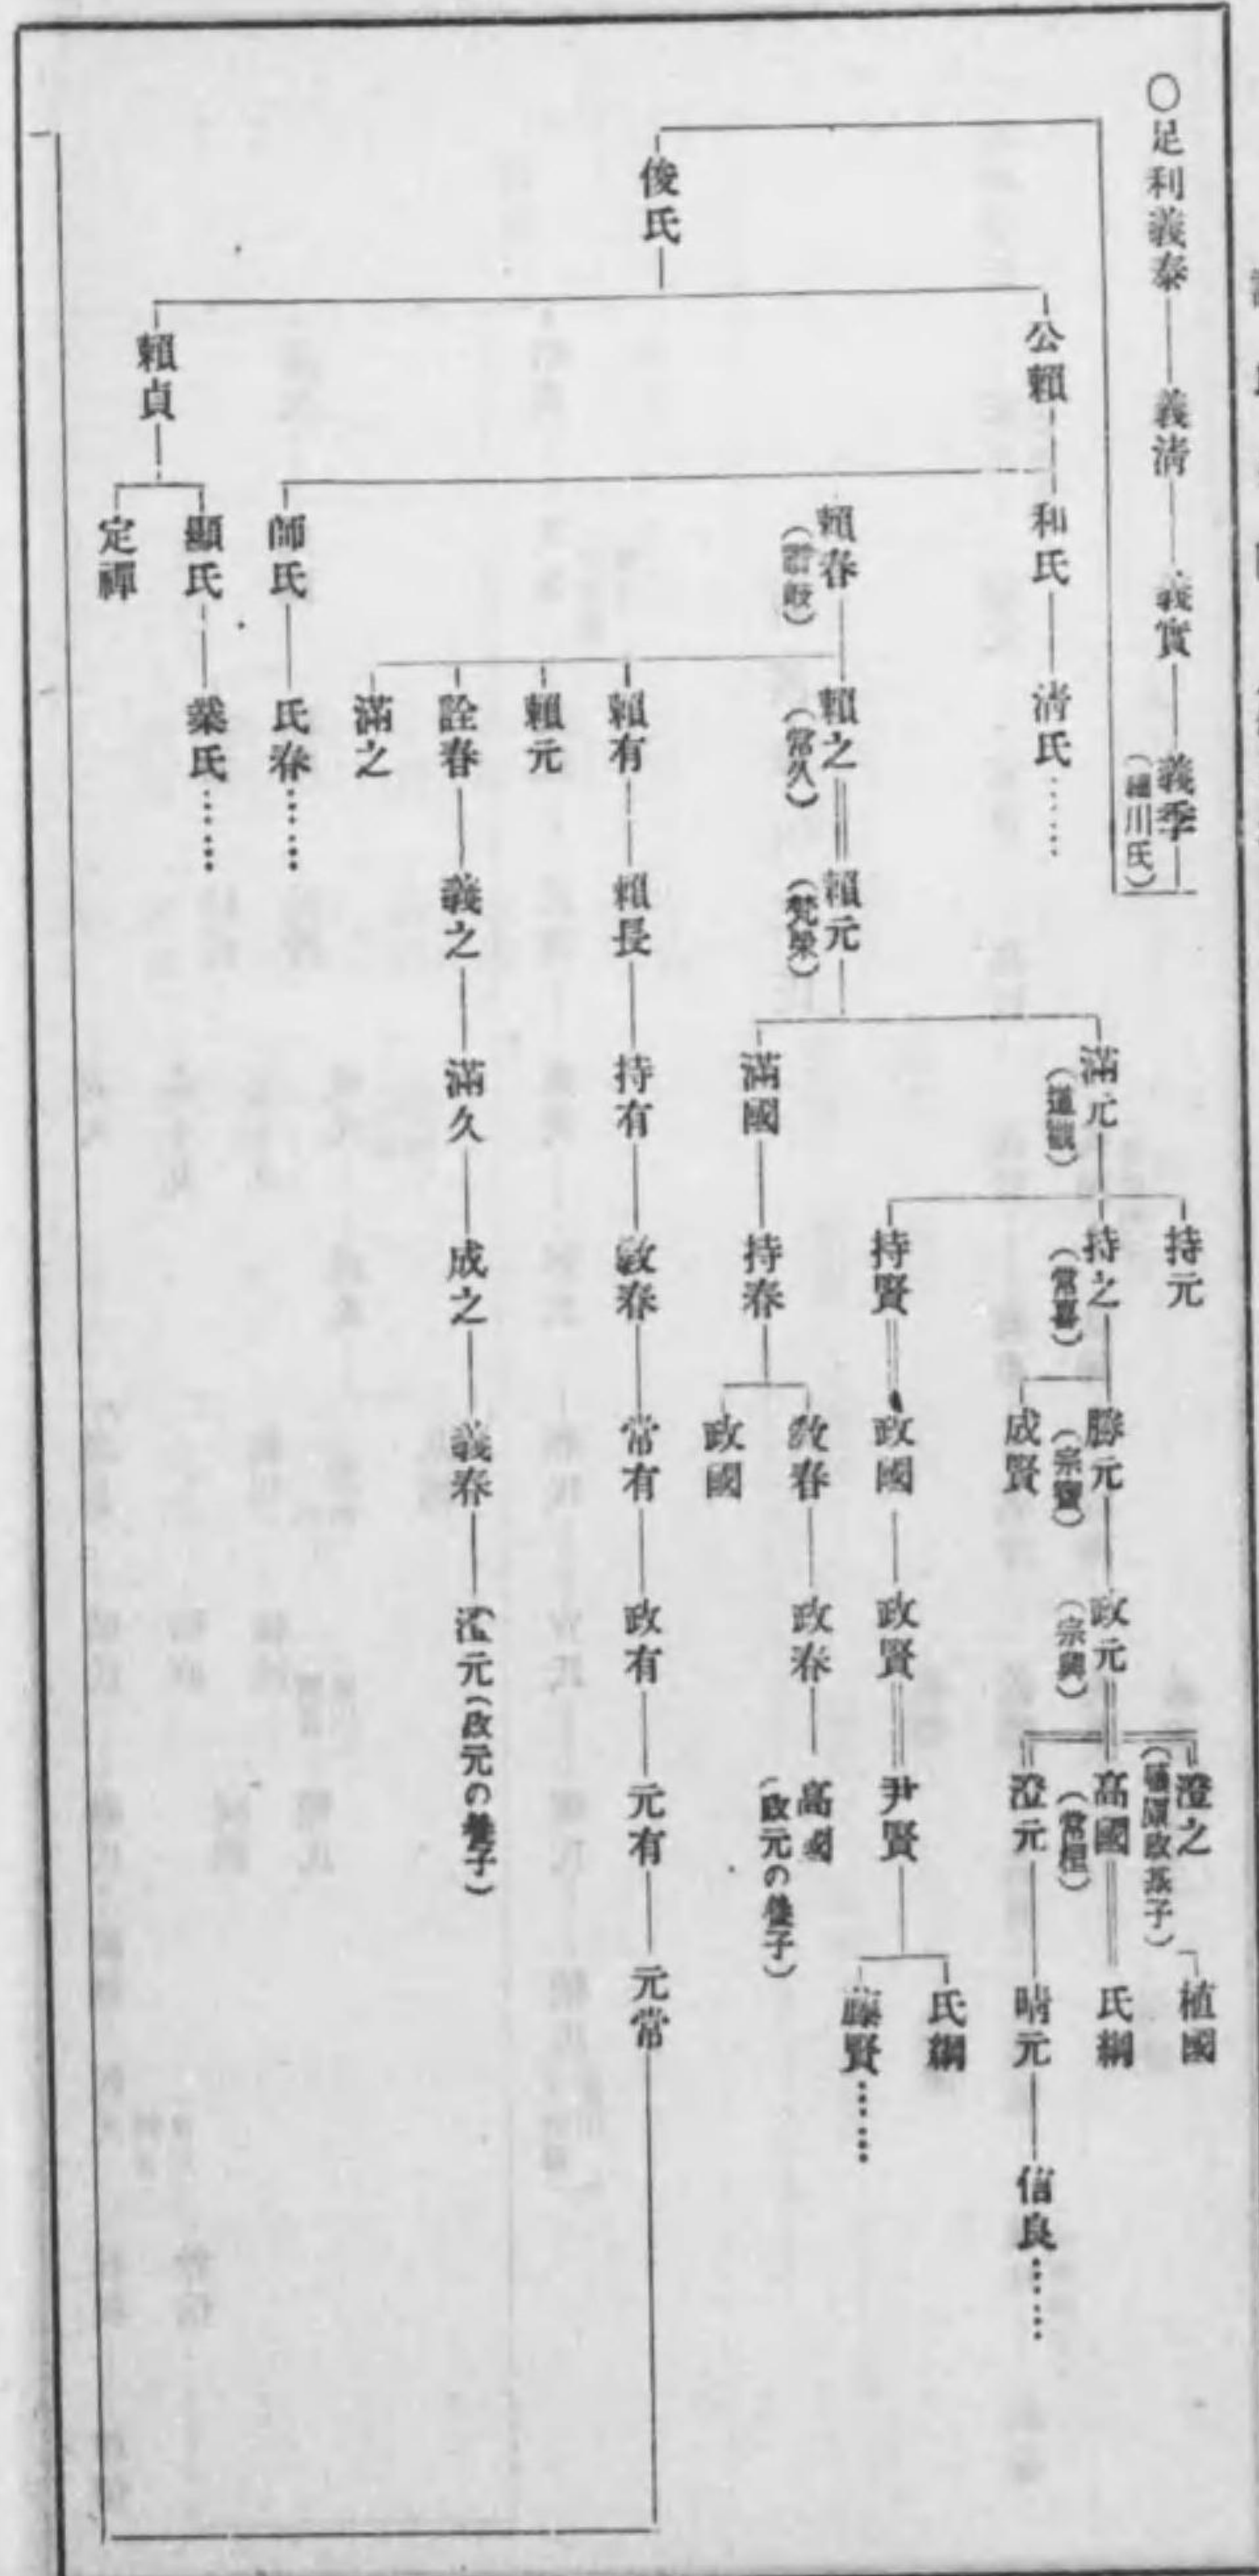 〇足利義泰
義清
義實
義季
(細川氏)
俊氏
公賴
賴貞
和氏
清氏
賴春
(讃岐)
賴之
(常久)
賴元
(梵榮)
滿元
(道歡)
持元
持之
(常喜)
勝元
(宗寶)
政元
(宗興)
澄之
高國
(常桓)
植國
氏綱
澄元
晴元
信良
成賢
持賢
政國
政賢
尹賢
氏綱
藤賢
滿國
持春
敎春
政春
高國
(政元の養子)
政國
賴有
賴長
持有
敎春
常有
政有
元有
元常
賴元
詮春
義之
滿久
成之
義春
澄元(政元の養子)
滿之
師氏
氏春
顯氏
業氏
定禪